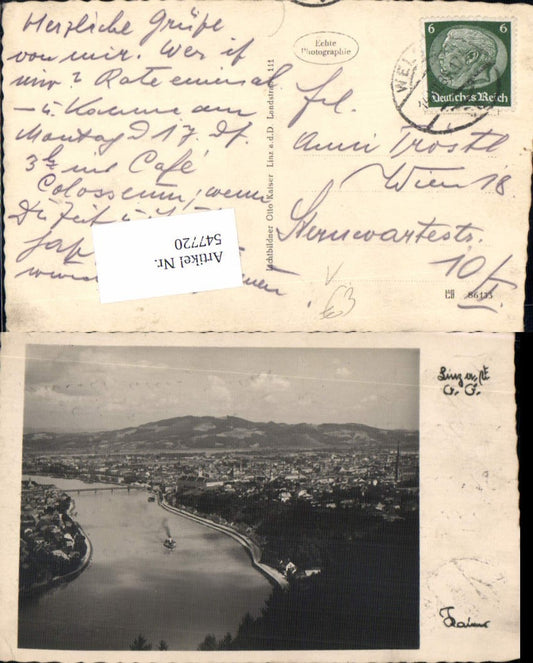 Herzliche Grüße
von mir. Wer ist
mir? Rate einmal
– u. komme am
Montag d 17. Df.
3h ins Café
Colosseum, wenn
Du Zeit
Artikel Nr.
547720
Echte
Photographie
Lichtbildner Otto Kaiser Linz a.d.D. Landstrasse 111
6 6
Deutsches Reich
WEL
Frl.
Anni Trostl
Wien 18
Sternwartestr.
10/I.
86133
V
63
Linz a. D.
O. Ö.
Kaiser